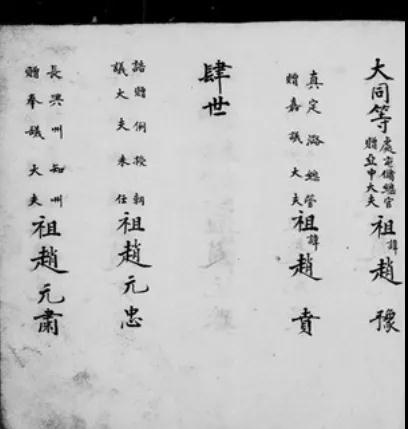 大同等處屯儲總官贈亞中大夫祖諱趙豫
真定路總管贈嘉議大夫祖諱趙賁
肆世
誥贈例授朝議大夫未任祖趙元忠
長興州知州贈奉議大夫祖趙元肅